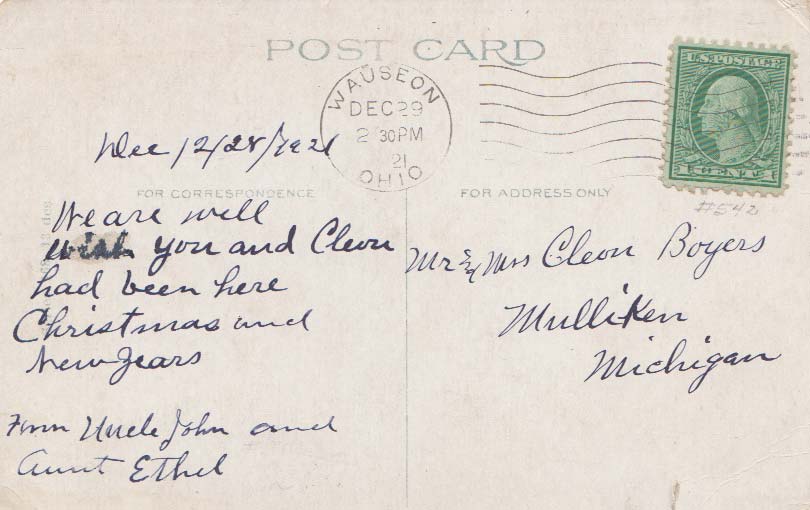 POST CARD
WAUSEON
DEC 29
2 30 PM
21
OHIO
U.S. POSTAGE
1 CENT 1
#542
Dec 12/28/1921
FOR CORRESPONDENCE
FOR ADDRESS ONLY
We are well
wish you and Cleon
had been here
Christmas and
New Years
From Uncle John and
Aunt Ethel
Mr & Mrs Cleon Boyers
Mulliken
Michigan